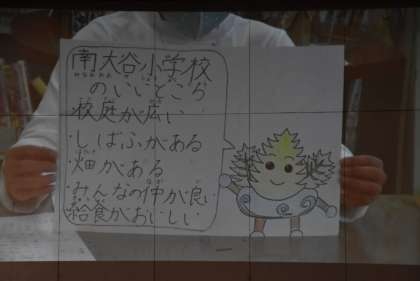 南大谷小学校
のいいところ
・校庭が広い
・しばふがある
・畑がある
・みんなの仲が良い
・給食がおいしい